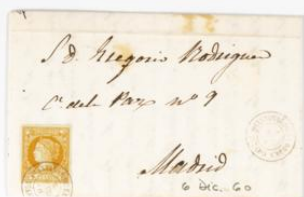 S D. Gregorio Rodriguez
C. de la Paz nº 9
Madrid
6 Dic. 60